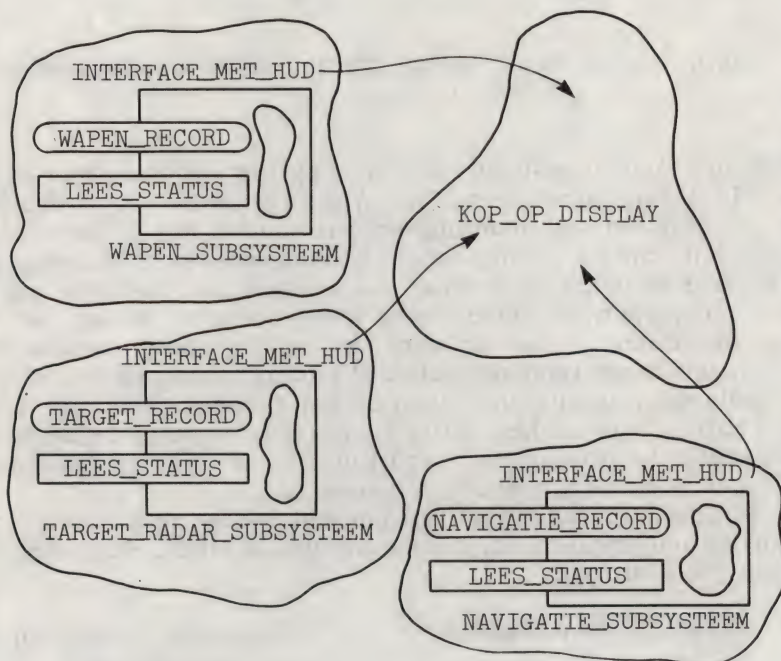 INTERFACE_MET_HUD
WAPEN_RECORD
LEES_STATUS
WAPEN_SUBSYSTEEM
KOP_OP_DISPLAY
INTERFACE_MET_HUD
TARGET_RECORD
LEES_STATUS
TARGET_RADAR_SUBSYSTEEM
INTERFACE_MET_HUD
NAVIGATIE_RECORD
LEES_STATUS
NAVIGATIE_SUBSYSTEEM